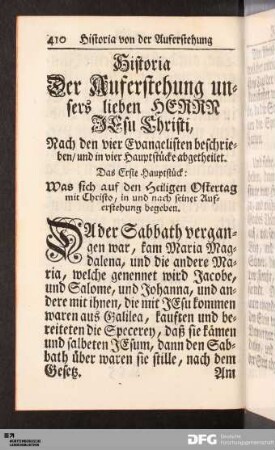 410 Historia von der Auferstehung
Historia
Der Auferstehung un-
sers lieben HERRN
JEsu Christi,
Nach den vier Evangelisten beschrie-
ben/ und in vier Hauptstücke abgetheilet.
Das Erste Hauptstück:
Was sich auf den Heiligen Ostertag
mit Christo, in und nach seiner Auf-
erstehung begeben.
DA der Sabbath vergan-
gen war, kam Maria Mag-
dalena, und die andere Ma-
ria, welche genennet wird Jacobe,
und Salome, und Johanna, und an-
dere mit ihnen, die mit JEsu kommen
waren aus Galilea, kauften und be-
reiteten die Specerey, daß sie kämen
und salbeten JEsum, dann den Sab-
bath über waren sie stille, nach dem
Gesetz. Am
DFG Deutsche
Forschungsgemeinschaft